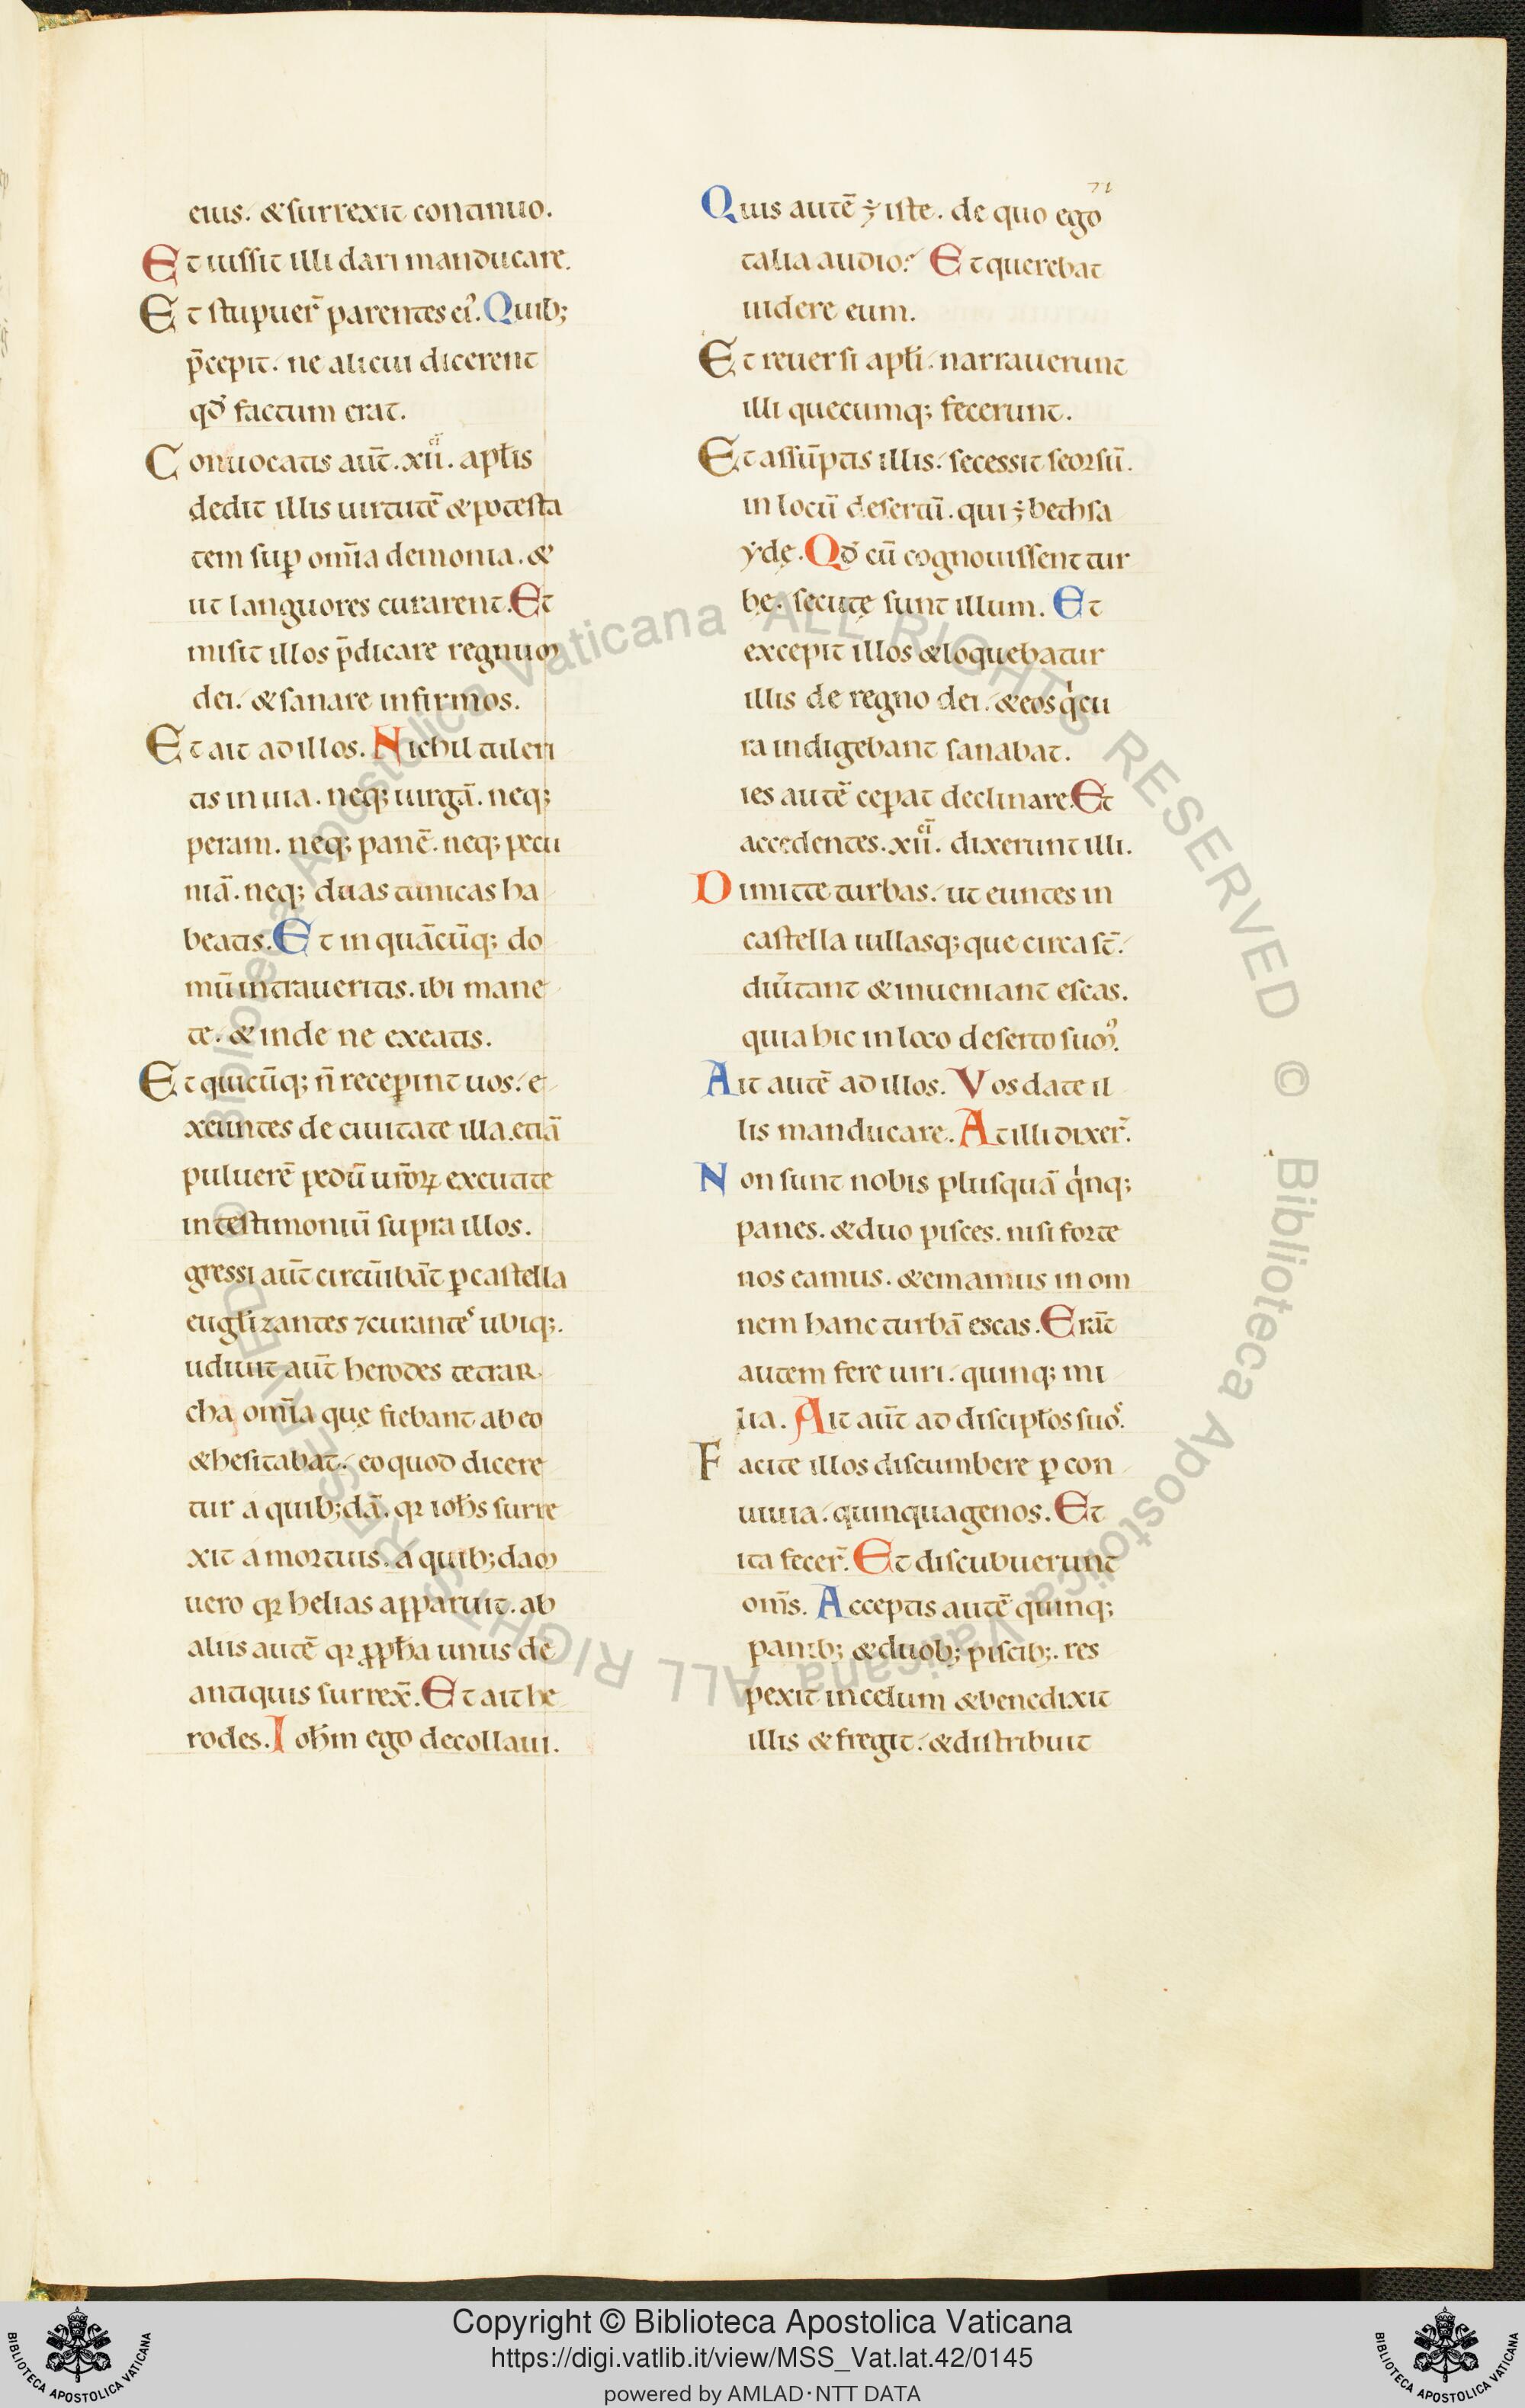 71
eius. &surrexit continuo.
Et iussit illi dari manducare.
Et stupuer̃ parentes ei᾿. Quib;
p̃cepit. ne alicui dicerent
qđ factum erat.
Conuocatis aut̃. xii. apłis
dedit illis uirtutẽ & potesta
tem suꝑ om̃ia demonia. &
ut languores curarent. Et
misit illos p̃dicare regnum
dei. & sanare infirmos.
Et ait ad illos. Nichil tuleri
tis in uia. neq; uirgã. neq;
peram. neq; panẽ. neq; pecu
niã. neq; duas tunicas ha
beatis. Et in quãcũq; do
mũ intraueritis. ibi mane
te. & inde ne exeatis.
Et quicũq; ñ receꝑint uos. e
xeuntes de ciuitate illa. etiã
puluerẽ pedũ ur̃oꝝ excutite
in testimoniũ supra illos.
gressi aut̃ circũibãt ꝑ castella
eugłizantes ⁊ curantes ubiq;.
udiuit aut̃ herodes tetrar
cha om̃ia quę fiebant ab eo
& hesitabat. eo quod dicere
tur a quib;dã. qꝛ ioħs surre
xit a mortuis. a quib;dam
uero qꝛ helias apparuit. ab
aliis autẽ qꝛ ꝓpħa unus de
antiquis surrex̃. Et ait he
rodes. Ioħm ego decollaui.
Quis autẽ ÷ iste. de quo ego
talia audio? Et querebat
uidere eum.
Et reuersi apłi. narrauerunt
illi quecumq; fecerunt.
Et assũptis illis. secessit seorsũ.
in locũ desertũ. qui ÷ bethsa
ẏdę. Qđ cũ cognouissent tur
bę. secutę sunt illum. Et
excepit illos & loquebatur
illis de regno dei. & eos qͥ cu
ra indigebant sanabat.
ies autẽ ceꝑat declinare. Et
accedentes. xii. dixerunt illi.
Dimitte turbas. ut euntes in
castella uillasq; que circa st̃.
diũtant & inueniant escas.
quia hic in loco deserto sum᾿.
Ait autẽ ad illos. Vos date il
lis manducare. At illi dixer̃.
Non sunt nobis plusquã qͥnq;
panes. & duo pisces. nisi forte
nos eamus. & emamus in om
nem hanc turbã escas. Erãt
autem fere uiri. quinq; mi
lia. Ait aut̃ ad discipłos suos.
Facite illos discumbere ꝑ con
uiuia. quinquagenos. Et
ita fecer̃. Et discubuerunt
om̃s. Acceptis autẽ quinq;
panib; & duob; piscib;. res
pexit in celum & benedixit
illis & fregit. & distribuit
© Biblioteca Apostolica Vaticana ALL RIGHTS RESERVED
© Biblioteca Apostolica Vaticana ALL RIGHTS RESERVED
Copyright © Biblioteca Apostolica Vaticana
https://digi.vatlib.it/view/MSS_Vat.lat.42/0145
powered by AMLAD·NTT DATA
BIBLIOTECA APOSTOLICA VATICANA
BIBLIOTECA APOSTOLICA VATICANA